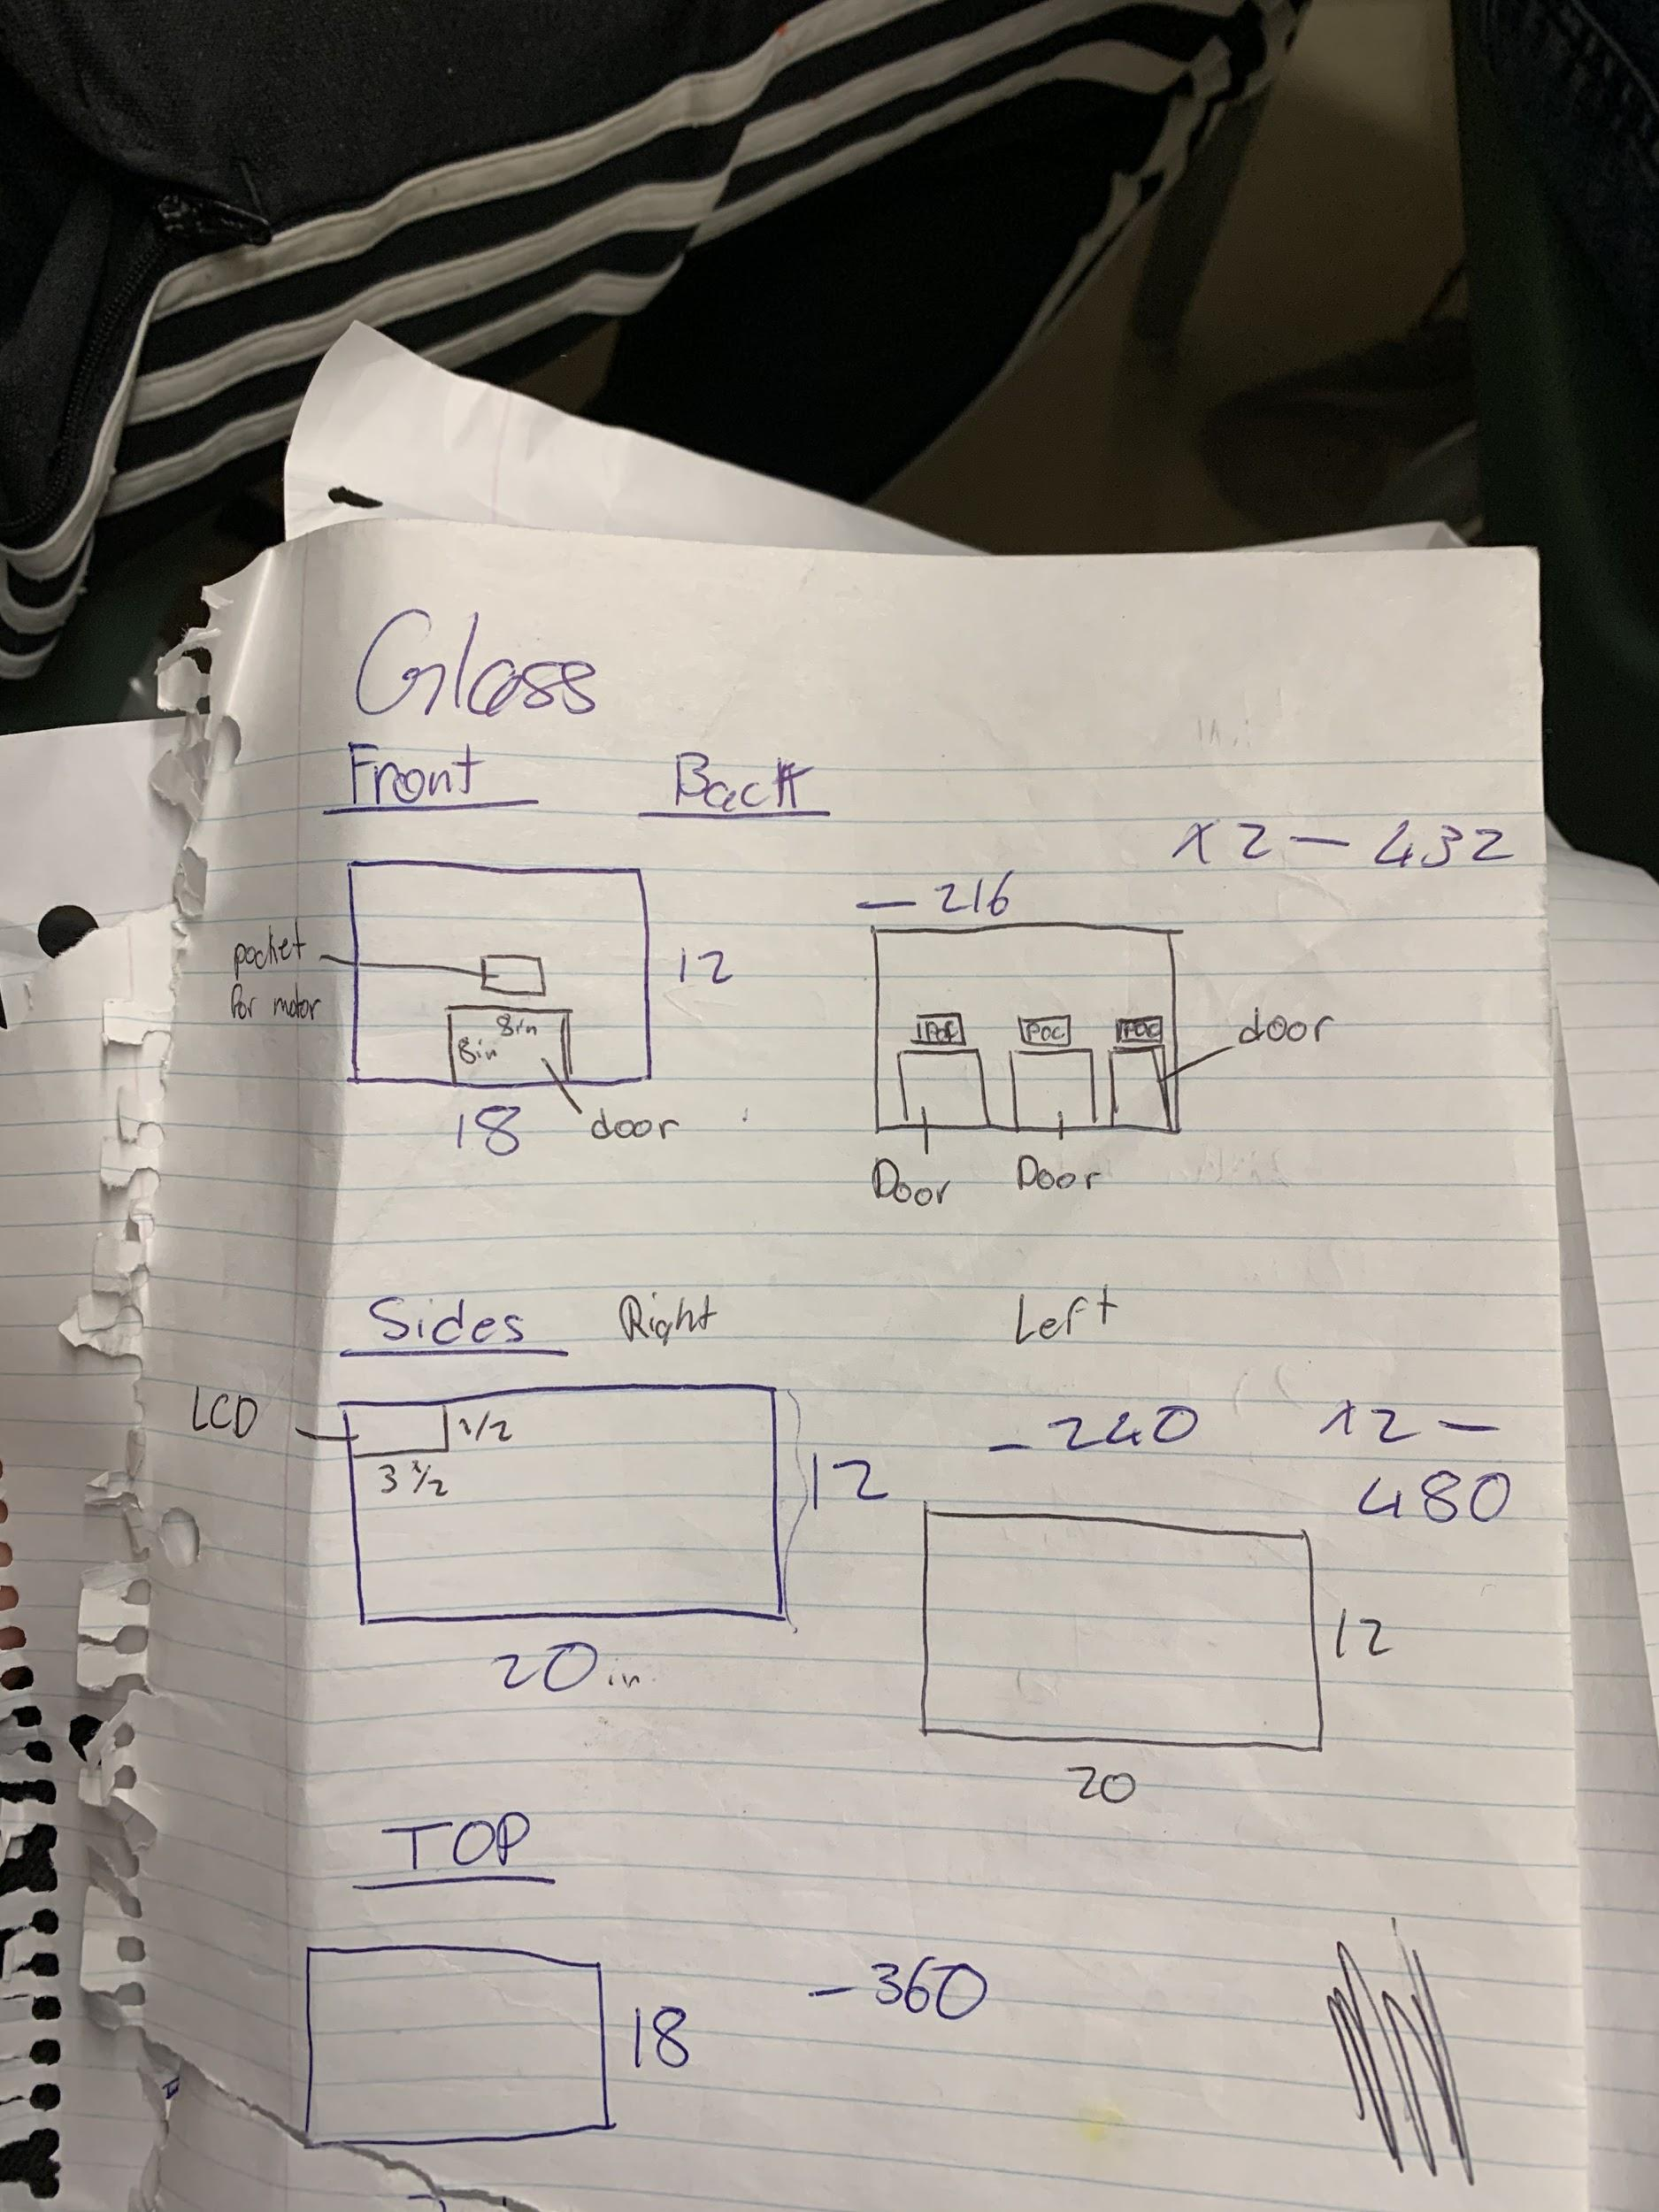 Glass
Front Back
x2 - 432
- 216
pocket
for motor
12
8in
8in
POC POC POC
door
18
door
Door Door
Sides Right Left
LCD
1/2
3 1/2
12
- 240 x2 -
480
20 in.
12
20
TOP
18
- 360